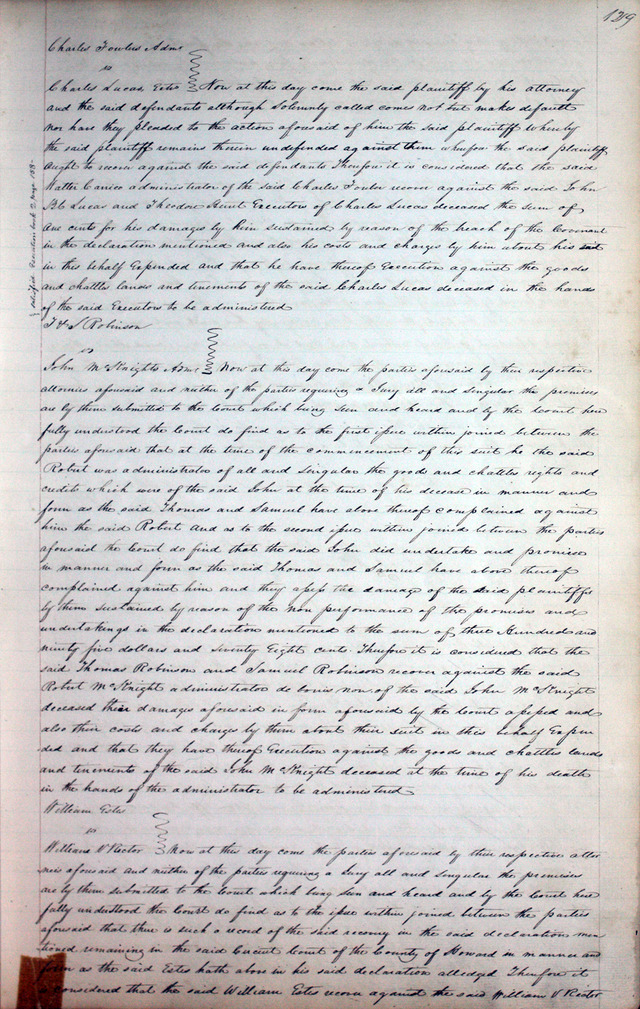 129
Charles Fowlers Adms
vs
Charles Lucas, Estes Now at this day come the said plaintiff by his attorney
and the said defendants although Solemnly called comes not but makes default
nor have they pleaded to the action aforesaid of him the said plaintiff whereby
the said plaintiff remains therein undefended against them wherefore the said plaintiff
ought to recover against the said defendants Therefore it is considered that the said
administrator of the said Charles Fowler recover against the said John
Bt Lucas and Theodore Hunt Executors of Charles Lucas deceased the sum of
one cents for his damages by him sustained by reason of the breach of the Covenant
in the declaration mentioned and also his costs and charges by him about his suit
in this behalf Expended and that he have thereof Execution against the goods
and chattles lands and tenements of the said Charles Lucas deceased in the hands
of the said Executors to be administered
satisfied Execution book 2 page 188
T & S Robinson
vs
John McKnights Adms Now at this day come the parties aforesaid by their respective
attornies aforesaid and neither of the parties requiring a Jury all and Singular the premises
are by them submitted to the Court which being Seen and heard and by the Court here
fully understood the Court do find as to the first ipue within joined between the
parties aforesaid that at the time of the commencement of this suit he the said
Robert was administrator of all and Singular the goods and chattles rights and
credits which were of the said John at the time of his decease in manner and
form as the said Thomas and Samuel have above thereof complained against
him the said Robert and as to the second ipue within joined between the parties
aforesaid the Court do find that the said John did undertake and promise
in manner and form as the said Thomas and Samuel have above thereof
complained against him and they apep the damage of the said plaintiffs
by them Sustained by reason of the Non performance of the promises and
undertakings in the declaration mentioned to the sum of three Hundred and
ninety five dollars and Seventy Eight cents Therefore it is considered that the
said Thomas Robinson and Samuel Robinson recover against the said
Robert McKnight administrator de bonis non of the said John McKnight
deceased their damages aforesaid in form aforesaid by the Court apeped and
also their costs and charges by them about their suit in this behalf Expen
ded and that they have thereof Execution against the goods and chattles lands
and tenements of the said John McKnight deceased at the time of his death
in the hands of the administrator to be administered
William Estes
vs
William V Rector Now at this day come the parties aforesaid by their respective attor
neis aforesaid and neither of the parties requiring a Jury all and Singular the premises
are by them submitted to the Court which being Seen and heard and by the Court here
fully understood the Court do find as to the ipue within joined between the parties
aforesaid that there is such a record of the said recovery in the said declaration men
tioned remaining in the said Circuit Court of the County of Howard in manner and
form as the said Estes hath above in his said declaration alledged Therefore it
is considered that the said William Estes recover against the said William V Rector